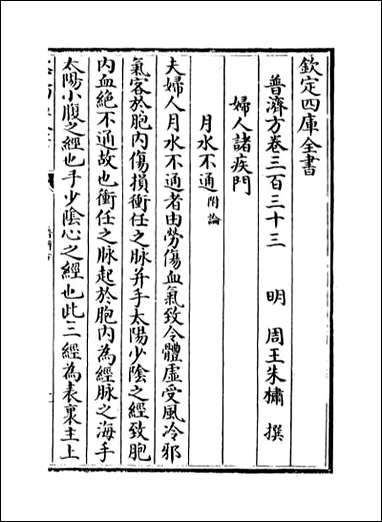 欽定四庫全書
普濟方卷三百三十三　明　周王朱橚　撰
婦人諸疾門
月水不通附論
夫婦人月水不通者由勞傷血氣致令體虛受風冷邪
氣客於胞内傷損衝任之脉并手太陽少陰之經致胞
内血絶不通故也衝任之脉起於胞内為經脉之海手
太陽小腹之經也手少陰心之經也此三經為表裏主上